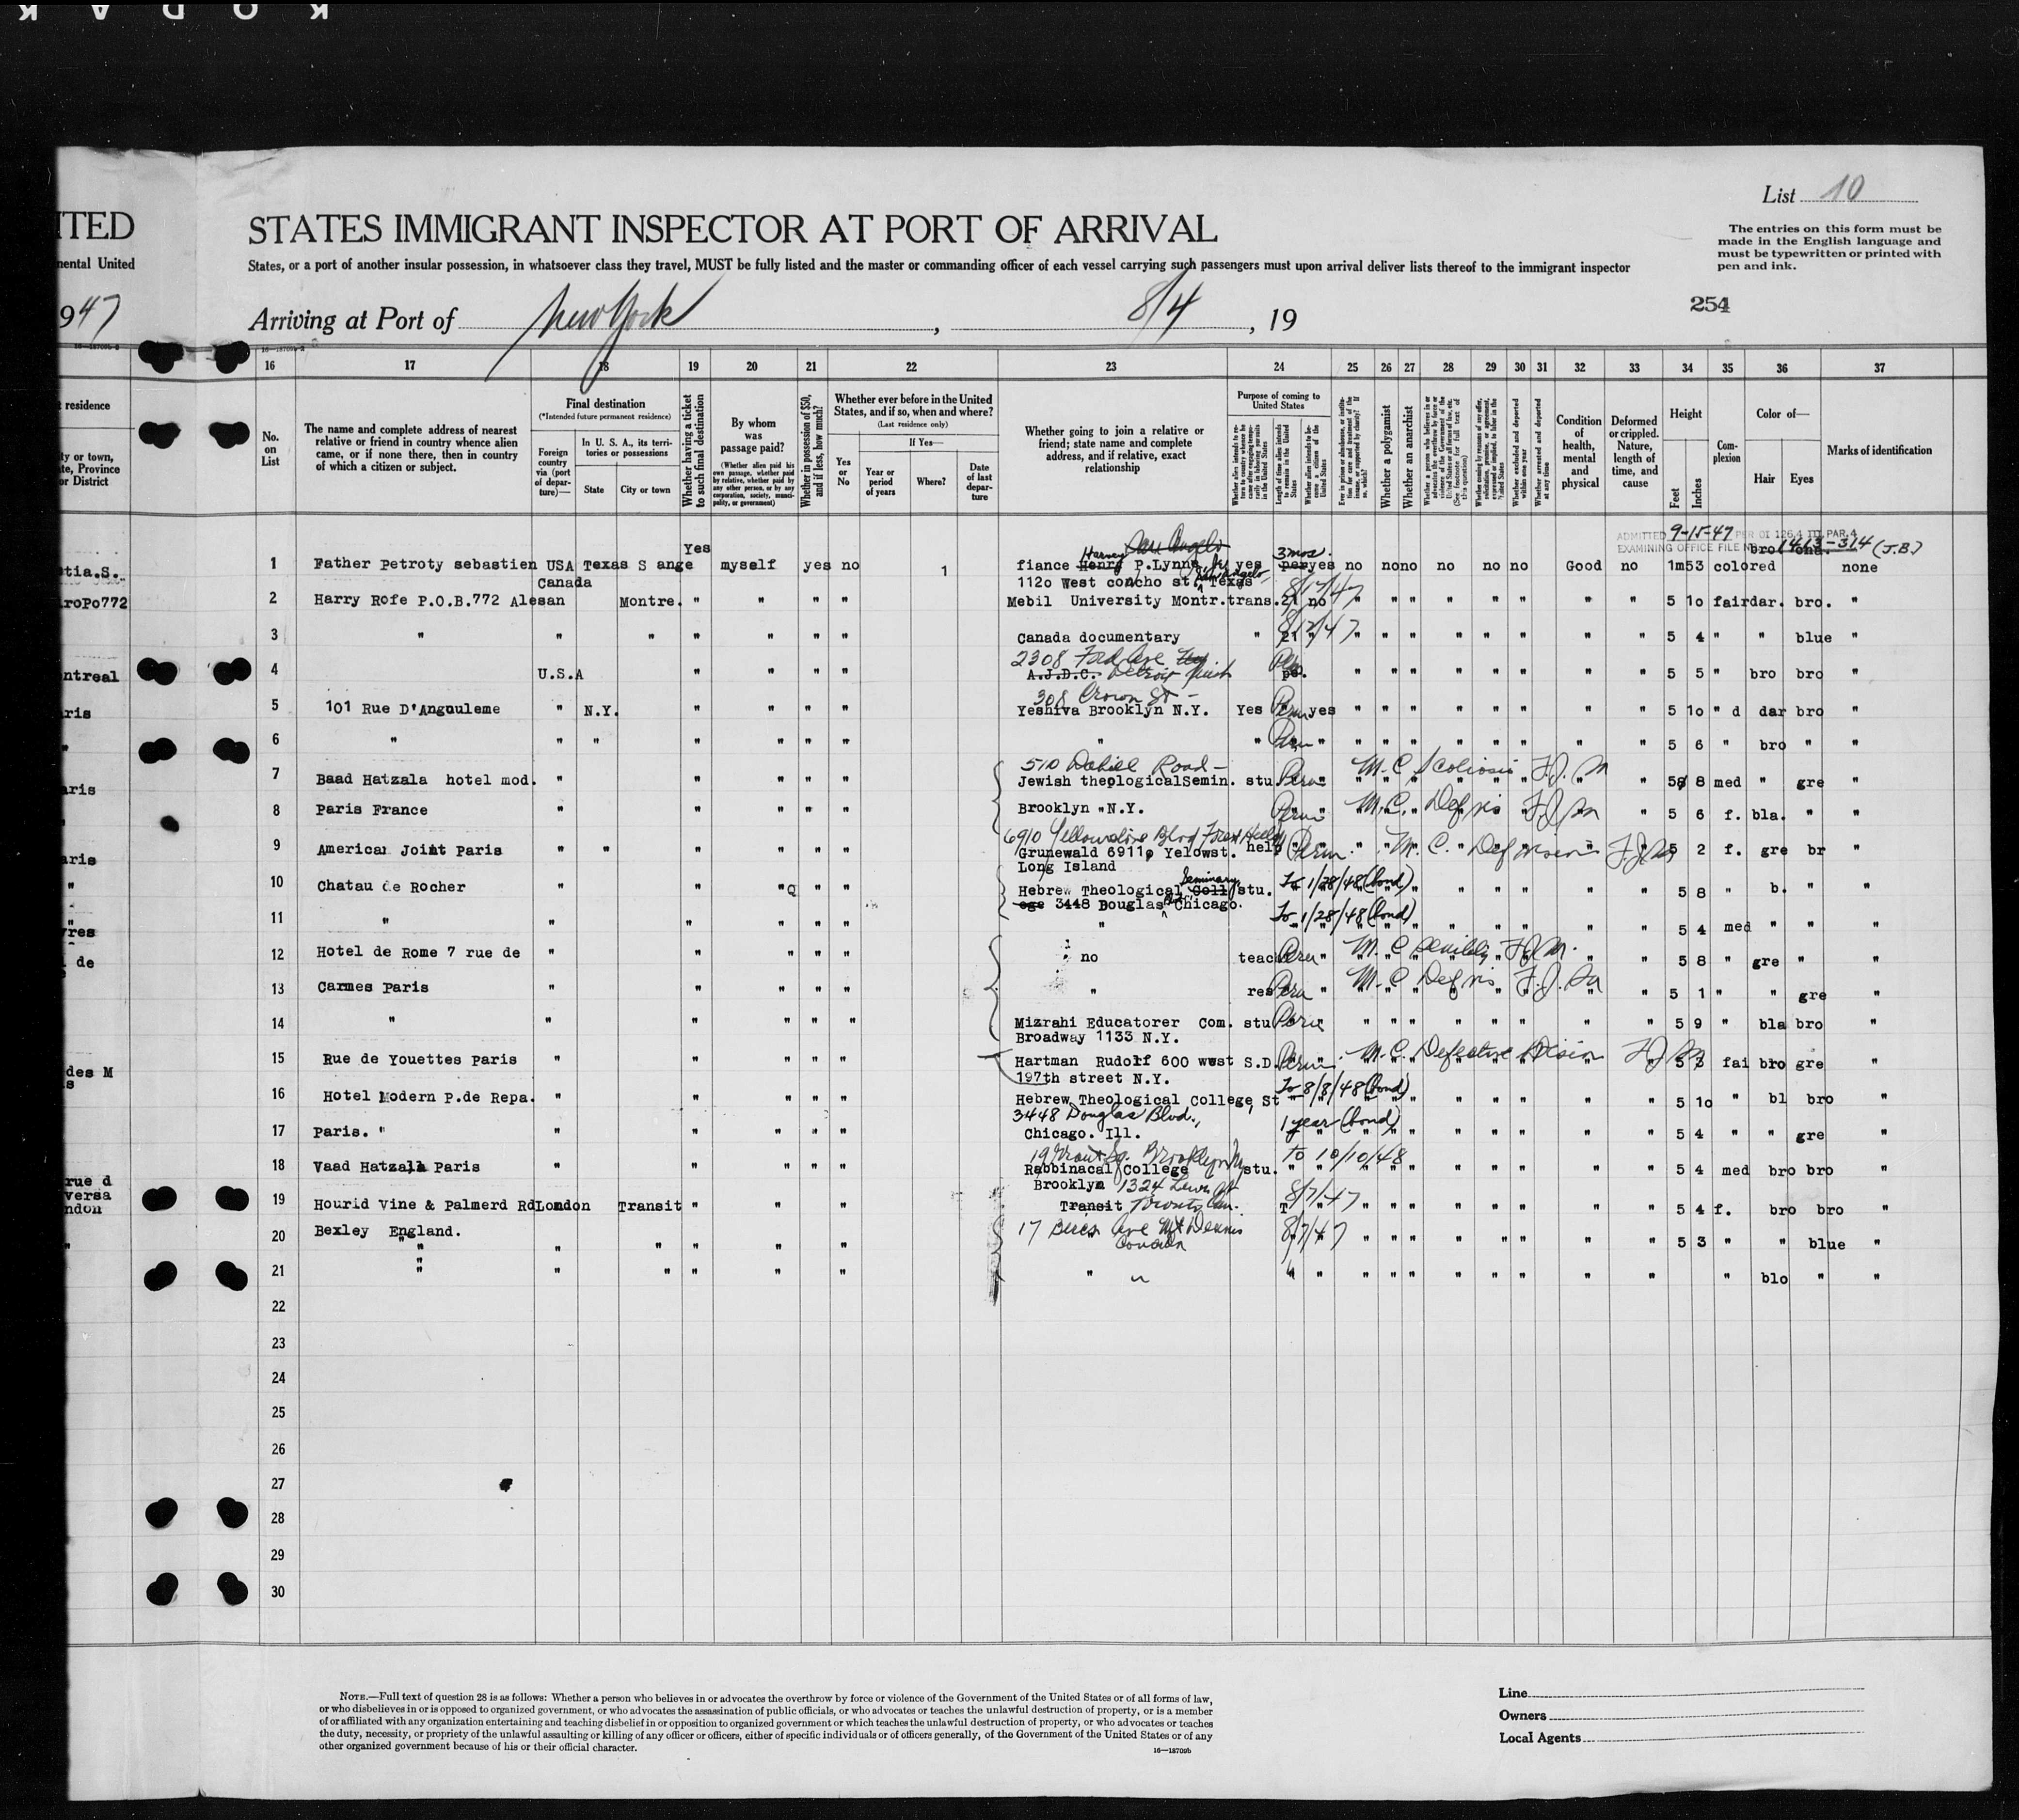 KODAK
List 10
ITED
STATES IMMIGRANT INSPECTOR AT PORT OF ARRIVAL
The entries on this form must be
made in the English language and
must be typewritten or printed with
pen and ink.
nental United
States, or a port of another insular possession, in whatsoever class they travel, MUST be fully listed and the master or commanding officer of each vessel carrying such passengers must upon arrival deliver lists thereof to the immigrant inspector
254
947
Arriving at Port of New York, 8/4, 19
16 17 18 19 20 21 22 23 24 25 26 27 28 29 30 31 32 33 34 35 36 37
residence
ty or town,
te, Province
or District
No.
on
List
The name and complete address of nearest
relative or friend in country whence alien
came, or if none there, then in country
of which a citizen or subject.
Final destination
(*Intended future permanent residence)
Foreign
country
via (port
of depar-
ture)—
In U. S. A., its terri-
tories or possessions
State
City or town
Whether having a ticket
to such final destination
By whom
was
passage paid?
(Whether alien paid his
own passage, whether paid
by relative, whether paid by
any other person, or by any
corporation, society, munici-
pality, or government)
Whether in possession of $50,
and if less, how much?
Whether ever before in the United
States, and if so, when and where?
(Last residence only)
Yes
or
No
If Yes—
Year or
period
of years
Where?
Date
of last
depar-
ture
Whether going to join a relative or
friend; state name and complete
address, and if relative, exact
relationship
Purpose of coming to
United States
Whether a polygamist
Whether an anarchist
Whether excluded and deported
within one year
Whether arrested and deported
at any time
Condition
of
health,
mental
and
physical
Deformed
or crippled.
Nature,
length of
time, and
cause
Height
Feet
Inches
Com-
plexion
Color of—
Hair
Eyes
Marks of identification
ADMITTED 9-15-47 PER OI 126.1 III PAR.4
EXAMINING OFFICE FILE NO 1413-314 (J.B.)
tia.S.
1 Father Petroty sebastien USA Texas S ange Yes myself yes no 1 fiance Henry Harvey P.Lynne Jr San Angelo yes 3 mos. per yes no no no no no no Good no 1m53 colored bro none
Canada
112o West concho st San Angelo, Texas
roPo772
2 Harry Rofe P.O.B.772 Alesan Montre. " " " " Mebil University Montr. trans. 21 no 8/17/47 " " " " " " " " 5 1o fair dar. bro. "
3 " " " " " " " Canada documentary " 21 " 8/12/47 " " " " " " " 5 4 " " blue "
2308 Ford Ave
ntreal
4 U.S.A " " " " A.J.D.C. Detroit Mich pe. " " " " " " " " 5 5 " bro bro "
308 Crown St -
ris
5 101 Rue D'Angouleme " N.Y. " " " " Yeshiva Brooklyn N.Y. Yes Perm yes " " " " " " " " 5 1o " d dar bro "
6 " " " " " " " " " Perm " " " " " " " " " 5 6 " bro " "
510 Dahill Road -
7 Baad Hatzala hotel mod. " " " " " Jewish theplogicalSemin. stu. Perm " M.C. Scoliosis F.J.M " 5 8 med " gre "
aris
8 Paris France " " " " " Brooklyn N.Y. Perm M.C. Def vis F.J.M " 5 6 f. bla. " "
6910 Yellowstone Blvd Forest Hills
aris
9 America Joint Paris " " " " " " Grunewald 6911o Yelowst. help Perm. M.C. Def vision F.J.M 5 2 f. gre br "
Long Island
10 Chatau de Rocher " " "Q " " Hebrew Theological Seminary Coll stu. To 1/28/48 (bond) " " " " " " 5 8 " b. " "
ege 3448 Douglas Blvd. Chicago.
11 " " " " " " " To 1/28/48 (bond) " " " " " " 5 4 med " " "
vres
12 Hotel de Rome 7 rue de " " " " " no teac Perm " M.C. Senility F.J.M. " " 5 8 " gre " "
de
13 Carmes Paris " " " " " " res Perm " M.C Def vis F.J.M " " 5 1 " " gre "
14 " " " " " " Mizrahi Educatorer Com. stu Perm " " " " " " " " 5 9 " bla bro "
Broadway 1133 N.Y.
15 Rue de Youettes Paris " " " " " Hartman Rudolf 600 west S.D. Perm. M.C. Defective Vision F.J.M 5 3 fai bro gre "
des M
197th street N.Y.
16 Hotel Modern P.de Repa. " " " " " Hebrew Theological College, St To 8/8/48 (bond) " " " " " " 5 1o " bl bro "
3448 Douglas Blvd.,
17 Paris. " " " " " " Chicago. Ill. 1 year (bond) " " " " " " 5 4 " " gre "
18 Vaad Hatzala Paris " " " " " Rabbinacal College stu. To 10/10/48 " " " " " " 5 4 med bro bro "
rue d
versa
ndon
Brooklyn 1324
19 Hourid Vine & Palmerd Rd London Transit " " " Transit Toronto Can. T 8/7/47 " " " " " " " 5 4 f. bro bro "
Bexley England.
20 " " " " " " 17 Ave Mt Dennis 8/7/47 " " " " " " " 5 3 " " blue "
Canada
21 " " " " " " " " " " " " " " " " " " blo " "
22
23
24
25
26
27
28
29
30
NOTE.—Full text of question 28 is as follows: Whether a person who believes in or advocates the overthrow by force or violence of the Government of the United States or of all forms of law,
or who disbelieves in or is opposed to organized government, or who advocates the assassination of public officials, or who advocates or teaches the unlawful destruction of property, or is a member
of or affiliated with any organization entertaining and teaching disbelief in or opposition to organized government or which teaches the unlawful destruction of property, or who advocates or teaches
the duty, necessity, or propriety of the unlawful assaulting or killing of any officer or officers, either of specific individuals or of officers generally, of the Government of the United States or of any
other organized government because of his or their official character.
16—18709b
Line
Owners
Local Agents